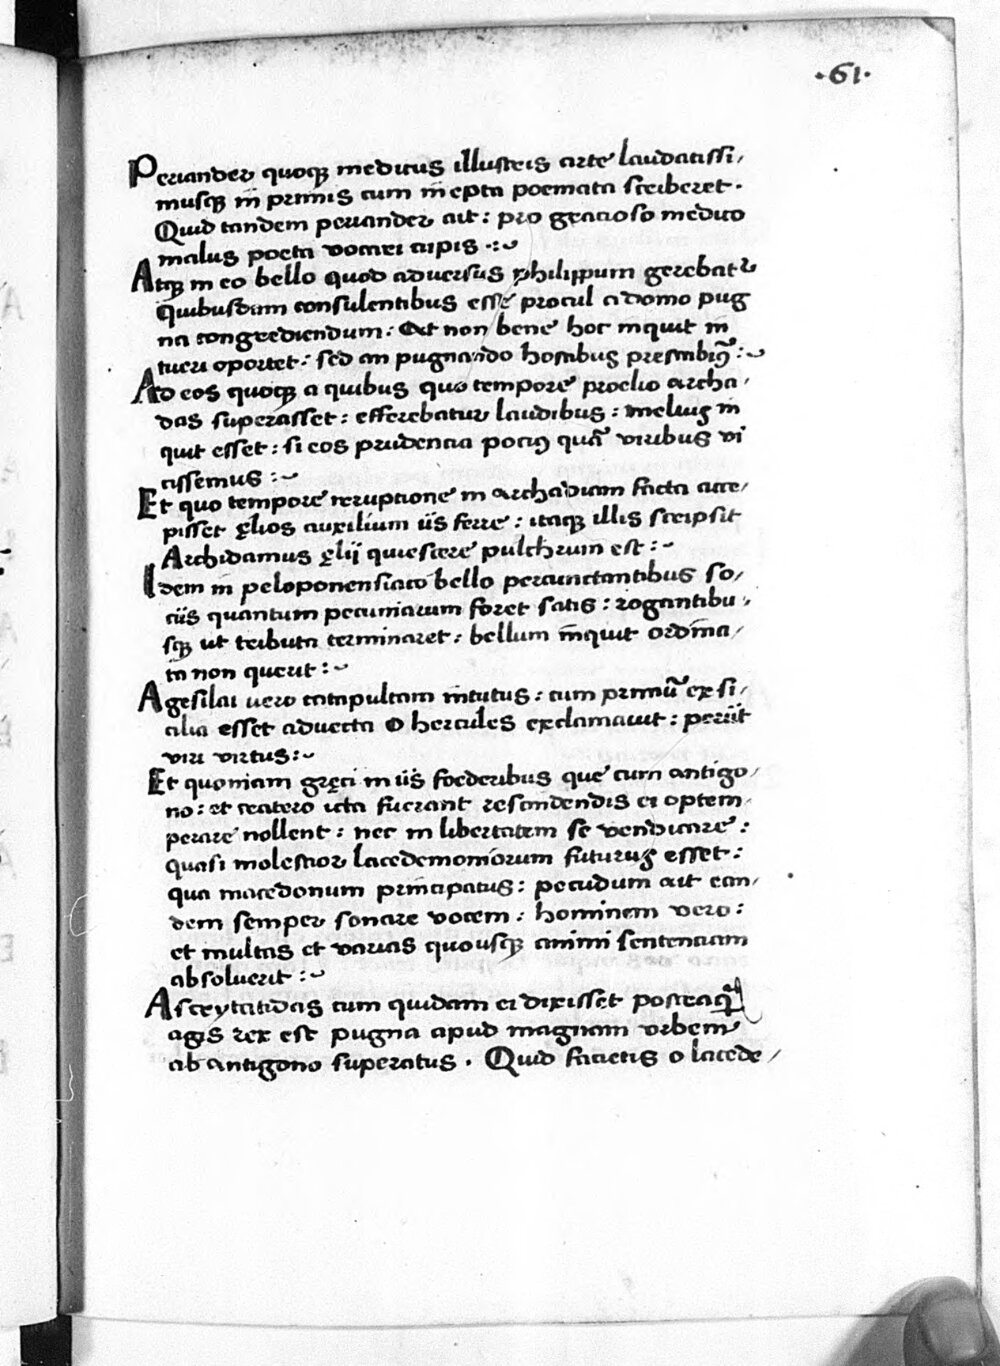 ·61·
Periander quoqꝫ medicus illustris arte laudatissi/
musqꝫ in primis cum inepta poemata scriberet·
Quid tandem periander ait: pro gracioso medico
malus poeta vocari cupis ·:~
Atqꝫ in eo bello quod aduersus philippum gerebatr
quibusdam consulentibus esse procul a domo pug
na congrediendum: At non bene hoc inquit in
tueri oportet: sed an pugnando hostibus presimꝰ:~
Ad eos quoqꝫ a quibus quo tempore proelio archa/
das superasset: efferebatur laudibus: melius in
quit esset: si eos prudencia pociꝰ quā viribus vi
cissemus :~
Et quo tempore reruptione in archadiam facta acce/
pisset ęlios auxilium iis ferre: itaqꝫ illis scripsit
Archidamus ęlij quiescere pulchrum est:~
Idem in peloponensiaco bello percunctantibus so/
ciis quantum pecuniarum foret satis: rogantibu/
sqꝫ ut tributa terminaret: bellum inquit ordina/
ta non querit:~
Agesilai uero catapultam intutus: cum primū ex si/
cilia esset aduecta O hercules exclamauit: periit
viri virtus:~
Et quoniam gręci in iis foederibus que cum antigo/
no: et cratero icta fuerant rescindendis ei optem/
perare nollent: nec in libertatem se vendicare:
quasi molestior lacedemoniorum futurus esset:
qua macedonum principatus: pecudum ait ean/
dem semper sonare vocem: hominem vero:
et multas et varias quousqꝫ animi sentenciam
absoluerit:~
Asceytatidas cum quidam ei dixisset posteaꝗ̄
agis rex est pugna apud magnam vrbem
ab antigono superatus. Quid facietis o lacede/